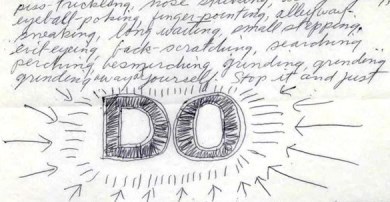 piss-trickling, nose
eyeball-poking, finger-pointing, alleyway-
sneaking, long waiting, small stepping,
evil-eyeing, back-scratching, searching,
perching, besmirching, grinding, grinding
grinding away at yourself. Stop it and just
DO